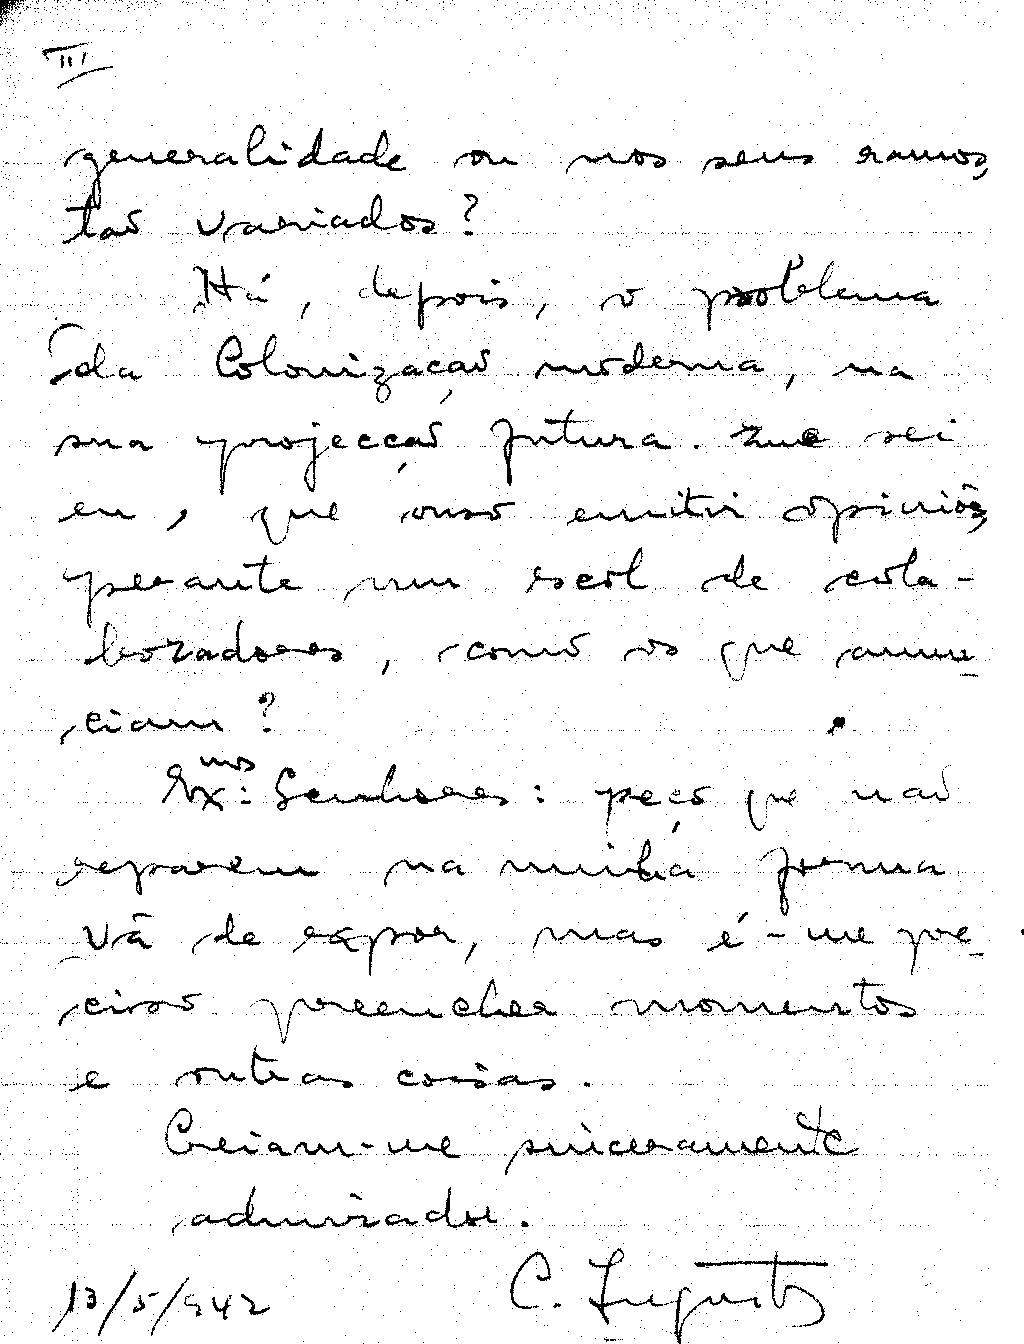 III
generalidade ou nos seus ramos,
tão variados?
Há, depois, o problema
da Colonização moderna, na
sua projecção futura. Que sei
eu, que ouso emitir opiniões,
perante um escol de cola-
boradores, como os que anun-
ciam?
Ex.mos Senhores: peço que não
reparem na minha forma
vã de expor, mas é-me pre-
ciso preencher momentos
e outras coisas.
Creiam-me sinceramente
admirador.
13/5/942 C.